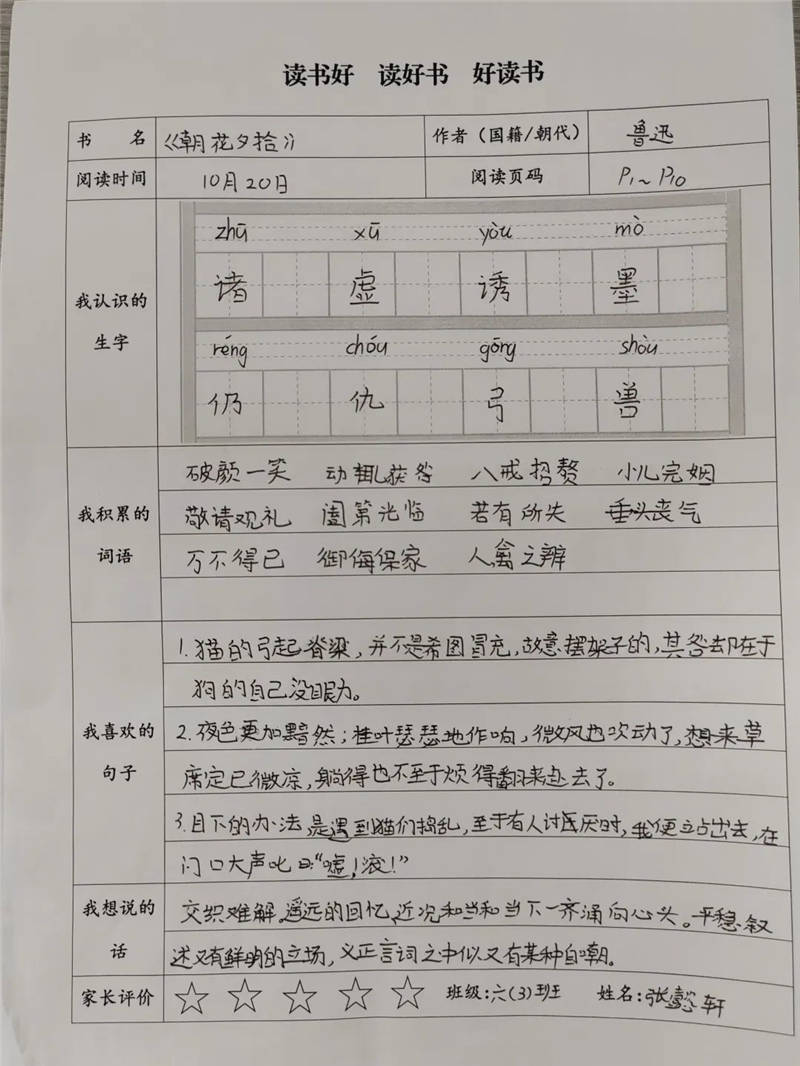 读书好 读好书 好读书
书 名 《朝花夕拾》 作者（国籍/朝代） 鲁迅
阅读时间 10月20日 阅读页码 P1~P10
zhū xū yòu mò
我认识的生字 诸 虚 诱 墨
réng chóu gōng shòu
仍 仇 弓 兽
破颜一笑 动辄获咎 八戒招赘 小儿完姻
我积累的词语 敬请观礼 阖第光临 若有所失 垂头丧气
万不得已 御侮保家 人禽之辨
1.猫的弓起脊梁，并不是希图冒充，故意摆架子的，其咎却在于
狗的自己没眼力。
我喜欢的句子 2.夜色更加黯然；桂叶瑟瑟地作响，微风也吹动了，想来草
席定已微凉，躺得也不至于烦得翻来赴去了。
3.目下的办法，是遇到猫们捣乱，至于有人讨厌时，我便立占出去，在
门口大声叱曰：“嘘！滚！”
我想说的话 交织难解，遥远的回忆，近况和当和当下一齐涌向心头。平稳叙
述又有鲜明的立场，义正言词之中似又有某种自嘲。
家长评价 ☆ ☆ ☆ ☆ ☆ 班级：六(3)班 姓名：张懿轩